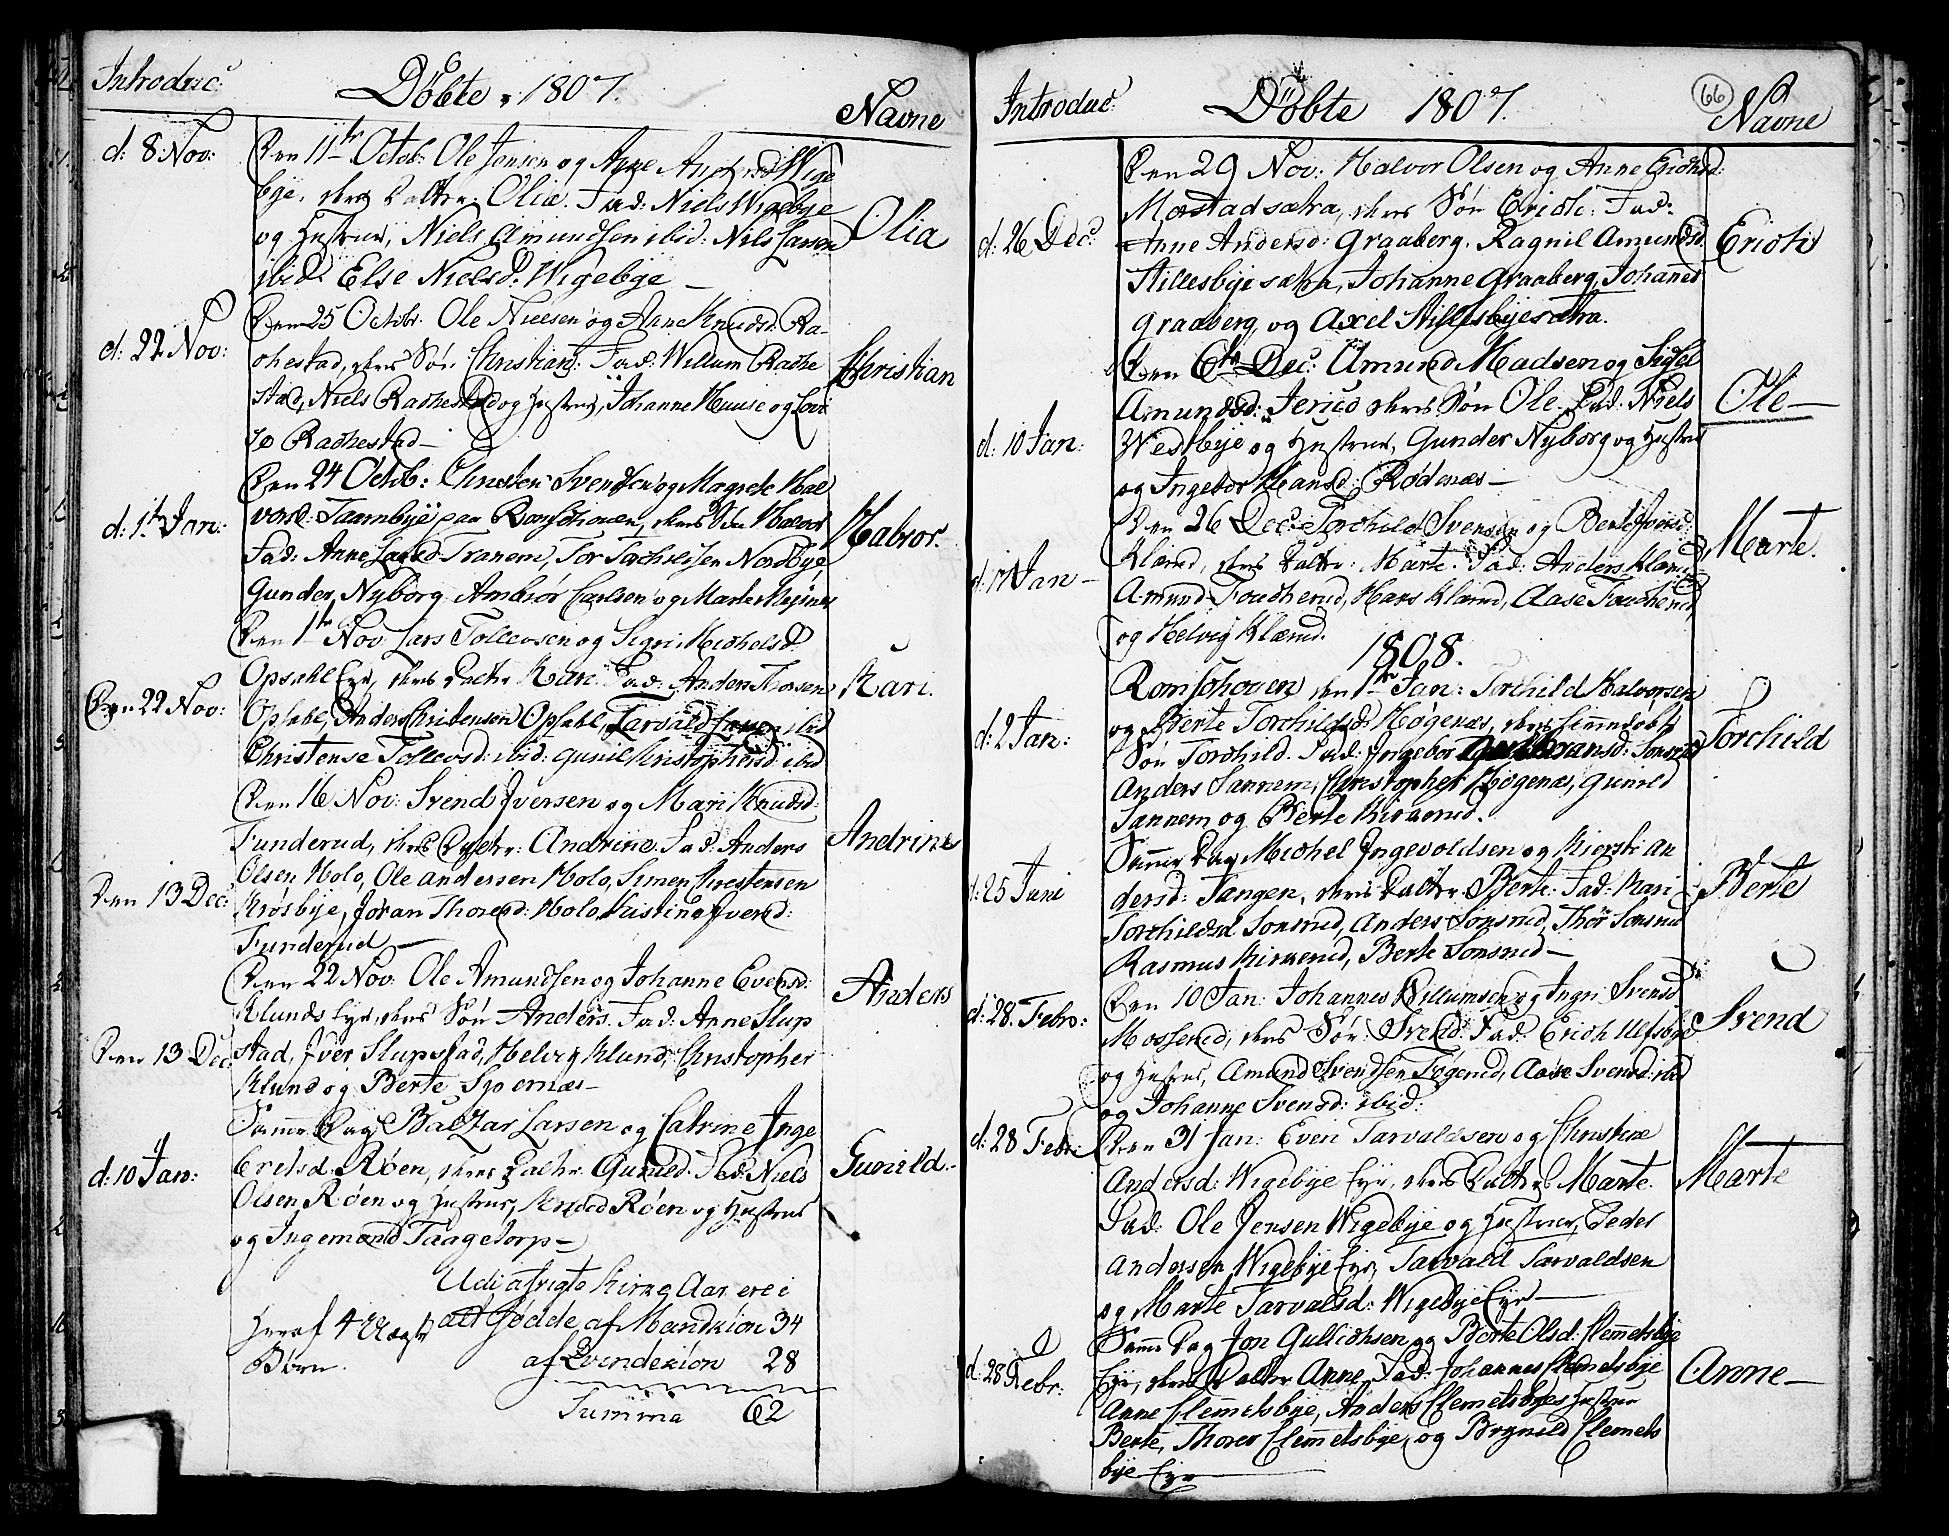 Introduc:
Döbte 1807.
Navne
d: 8 Nov:
Den 11te Octob: Ole Jensen og Anne Wige
bye, deres Datter Olia. Fad: Niels Wigebye
og Hustrue, Niels Amundsen ibid: Nils Larsen
ibid: Else Nielsd: Wigebye
Olia
d: 22 Nov:
Den 25 Octobr: Ole Nielsen og Anne Knudsd: Ra-
chestad, deres Sön Christian: Fad: Willum Rache
stad, Niels Rachestad og Hustrue, Johanne Huuse og
Rachestad
Christian
d: 1te Jan:
Den 24 Octob: Christen Svendsen og Magrete Hal
vorsd: Taarnbye paa Romschouen, deres Sön Halvor
Fad: Anne Tranem, Tor Torchelsen Nordbye,
Gunder Nyborg Ambiör Carlsen og Marte
Halvor.
Den 22 Nov:
Den 1te Nov: Lars Tollevsen og Sigri Michelsd:
Opsahl Eye, deres Datter Kari. Fad: Anders Thorsen
Opsahl, Anders Christensen Opsahl, Tarvald ibid
Christense Tollevsd: ibid: Gunil Christophersd: ibid
Kari.
Den 13 Dec:
Den 16 Nov: Svend Iversen og Mari Knudsd:
Funderud, deres Datter: Andrine. Fad: Anders
Olsen Holo, Ole Andersen Holo, Simen Christensen
Krösbye, Jöran Thoresd: Holo, Kistine Iversd:
Funderud
Andrine
Den 13 Dec:
Den 22 Nov: Ole Amundsen og Johanne Evensd:
Klunds Eye, deres Sön Anders. Fad: Anne Slup
stad, Iver Slupstad, Helvig Klund, Christopher
Klund og Berte Sjoernæs
Anders
d: 10 Jan:
Samme Dag Baltzar Larsen og Catrine Inge
bretsd. Röen, deres Datter Gunild. Fad: Niels
Olsen Röen og Hustrue, Knud Röen og Hustrue
og Ingemond Taagetorp
Gunild.
Udi afvigte Kirke Aar ere i
alt födde af Mandkiön 34
af Qvindekiön 28
Summa 62
Heraf 4 Uægte
Börn.
Introduc:
Döbte 1807.
66
Navne
d: 26 Dec:
Den 29 Nov: Halvor Olsen og Anne Erichsd:
Mörstadsætra, deres Sön Erich: Fad:
Anne Andersd: Graaberg, Ragnil Amundsd
Stillesbyesætra, Johanne Graaberg, Johannes
Graaberg, og Axel Stillesbyesætra.
Erich
d: 10 Jan:
Den 6te Dec: Amund Madsen og Sidsel
Amundsd: Jerico deres Sön Ole. Fad: Niels
Westbye og Hustrue, Gunder Nyborg og Hustrue
og Ingebor Hansd: Rödenæs
Ole
d: 17 Jan
Den 26 Dec: Torchild Svensen og Berte Iversd:
Klærud, deres Datter: Marte. Fad: Anders Klærud
Amund Foucherud, Hans Klærud, Aase Foucherud,
og Helvig Klærud.
Marte.
1808.
d: 2 Jan:
Romschouen den 1te Jan: Torchild Halvorsen
og Berte Torchildsd: Högenæs, deres hiemdöbt
Sön Torchild. Fad: Ingebor Sonsrud
Anders Tannem, Christopher Högenæs, Gunild
Tannem og Berte Kirkerud.
Torchild
d: 25 Juni
Samme Dag Michel Ingevoldsen og Kiersti An
dersd: Tangen, deres Datter Berte. Fad: Kari
Torchildsd Sonsrud, Anders Sonsrud, Thor Sonsrud
Rasmus Kirkerud, Berte Sonsrud
Berte
d: 28 Febr:
Den 10 Jan: Johannes Willumsen og Ingri Svensd
Mosserud, deres Sön: Svend. Fad: Erich Ulfsbye
og Hustrue, Amund Svendsen Tögerud, Aase Svensd: ibid
og Johanne Svensd: ibid:
Svend
d: 28 Febr:
Den 31 Jan: Even Tarvaldsen og Christine
Andersd: Wigebye Eye, deres Datter Marte.
Fad: Ole Jensen Wigebye og Hustrue, Peder
Andersen Wigebye Eye, Tarvald Tarvaldsen
og Marte Tarvalsd: Wigebye Eye
Marte
d: 28 Febr:
Samme Dag Jon Gullichsen og Berte Olsd: Clemmetsbye
Eye, deres Datter Anne. Fad: Johannes Clemmetsbye
Anne Clemmetsbye, Anders Clemmetsbyes Hustrue
Berte, Thorer Clemmetsbye, og Brynild Clemmets
bye Eye
Anne